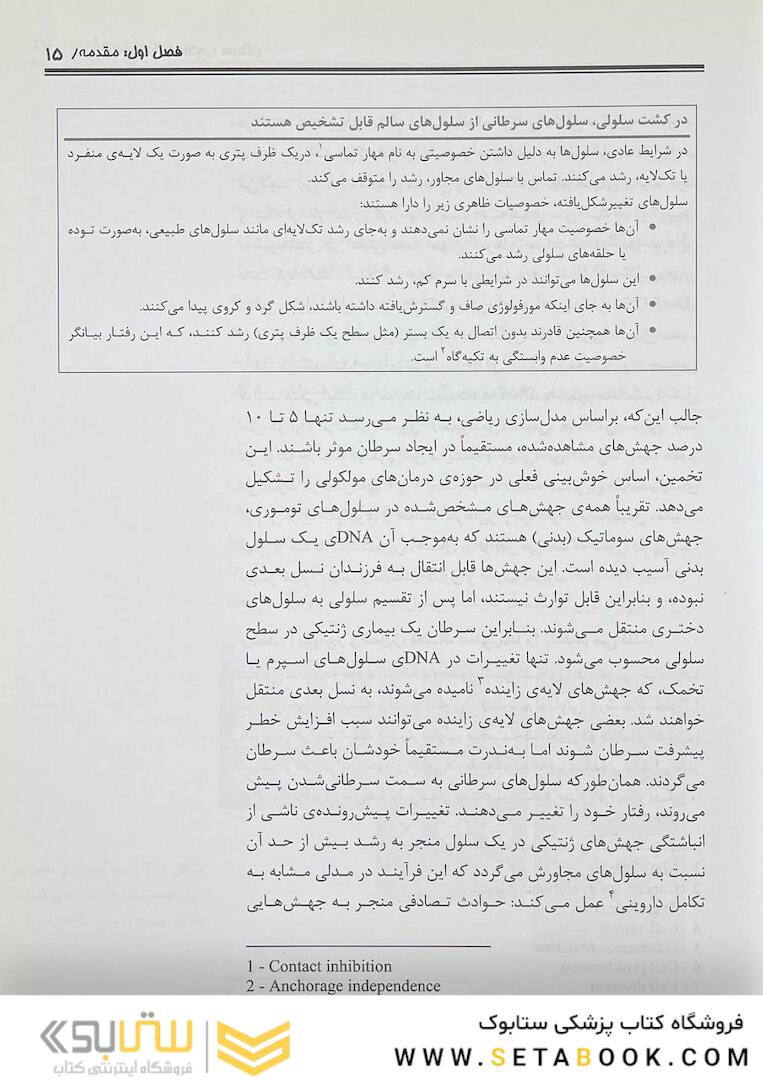 فصل اول: مقدمه/ ۱۵
در کشت سلولی، سلول‌های سرطانی از سلول‌های سالم قابل تشخیص هستند
در شرایط عادی، سلول‌ها به دلیل داشتن خصوصیتی به نام مهار تماسی۱، دریک ظرف پتری به صورت یک لایه‌ی منفرد
یا تک‌لایه، رشد می‌کنند. تماس با سلول‌های مجاور، رشد را متوقف می‌کند.
سلول‌های تغییرشکل‌یافته، خصوصیات ظاهری زیر را دارا هستند:
• آن‌ها خصوصیت مهار تماسی را نشان نمی‌دهند و به‌جای رشد تک‌لایه‌ای مانند سلول‌های طبیعی، به‌صورت توده
یا حلقه‌های سلولی رشد می‌کنند.
• این سلول‌ها می‌توانند در شرایطی با سرم کم، رشد کنند.
• آن‌ها به جای اینکه مورفولوژی صاف و گسترش‌یافته داشته باشند، شکل گرد و کروی پیدا می‌کنند.
• آن‌ها همچنین قادرند بدون اتصال به یک بستر (مثل سطح یک ظرف پتری) رشد کنند، که این رفتار بیانگر
خصوصیت عدم وابستگی به تکیه‌گاه۲ است.
جالب این‌که، براساس مدل‌سازی ریاضی، به نظر می‌رسد تنها ۵ تا ۱۰
درصد جهش‌های مشاهده‌شده، مستقیماً در ایجاد سرطان موثر باشند. این
تخمین، اساس خوش‌بینی فعلی در حوزه‌ی درمان‌های مولکولی را تشکیل
می‌دهد. تقریباً همه‌ی جهش‌های مشخص‌شده در سلول‌های توموری،
جهش‌های سوماتیک (بدنی) هستند که به‌موجب آن DNAی یک سلول
بدنی آسیب دیده است. این جهش‌ها قابل انتقال به فرزندان نسل بعدی
نبوده، و بنابراین قابل توارث نیستند، اما پس از تقسیم سلولی به سلول‌های
دختری منتقل می‌شوند. بنابراین سرطان یک بیماری ژنتیکی در سطح
سلولی محسوب می‌شود. تنها تغییرات در DNAی سلول‌های اسپرم یا
تخمک، که جهش‌های لایه‌ی زاینده۳ نامیده می‌شوند، به نسل بعدی منتقل
خواهند شد. بعضی جهش‌های لایه‌ی زاینده می‌توانند سبب افزایش خطر
پیشرفت سرطان شوند اما به‌ندرت مستقیماً خودشان باعث سرطان
می‌گردند. همان‌طورکه سلول‌های سرطانی به سمت سرطانی‌شدن پیش
می‌روند، رفتار خود را تغییر می‌دهند. تغییرات پیش‌رونده‌ی ناشی از
انباشتگی جهش‌های ژنتیکی در یک سلول منجر به رشد بیش از حد آن
نسبت به سلول‌های مجاورش می‌گردد که این فرآیند در مدلی مشابه به
تکامل داروینی۴ عمل می‌کند: حوادث تصادفی منجر به جهش‌هایی
1 - Contact inhibition
2 - Anchorage independence
فروشگاه کتاب پزشکی ستابوک
WWW.SETABOOK.COM
ستابوک
فروشگاه اینترنتی کتاب